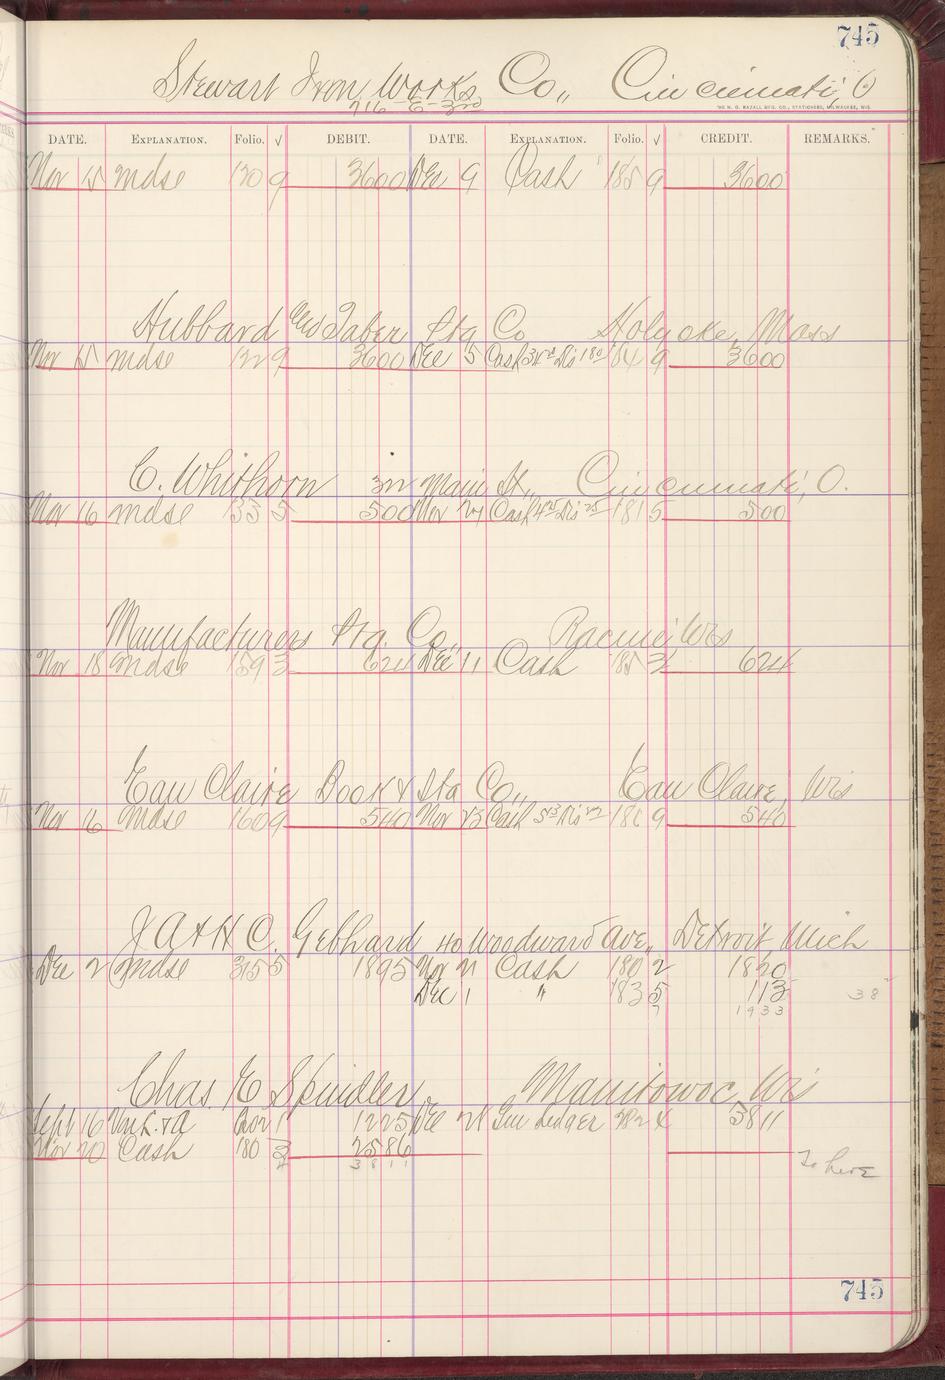 745
Stewart Iron Works Co., Cincinnati, O
716 E 3rd
THE H. G. RAZALL MFG. CO., STATIONERS, MILWAUKEE, WIS.
DATE. EXPLANATION. Folio. √ DEBIT. DATE. EXPLANATION. Folio. √ CREDIT. REMARKS.
Nov 15 Mdse 130 9 3600 Dec 9 Cash 185 9 3600
Hubbard and Taber Ptg Co Holyoke, Mass
Nov 15 Mdse 122 9 3600 Dec 5 Cash Dis 184 9 3600
C. Whithorn Main St., Cincinnati, O.
Nov 16 Mdse 135 5 500 Nov 27 Cash Dis 181 5 500
Manufacturers Ptg. Co., Racine Wis
Nov 18 Mdse 159 3 624 Dec 11 Cash 185 3 624
Eau Claire Book & Sta Co., Eau Claire, Wis
Nov 16 Mdse 160 9 540 Nov 23 Cash Dis 180 9 540
J A & H C. Gebhard 40 Woodward Ave., Detroit, Mich
Dec 2 Mdse 315 5 1895 Nov 21 Cash 180 2 1820
Dec 1 " 183 5 113 38
7 1933
Chas. E Spindler, Manitowoc, Wis
Sept 16 & A 1 1225 Dec 21 Gen Ledger 782 4 3811
Nov 20 Cash 180 3 2586
4 3811 To here
745